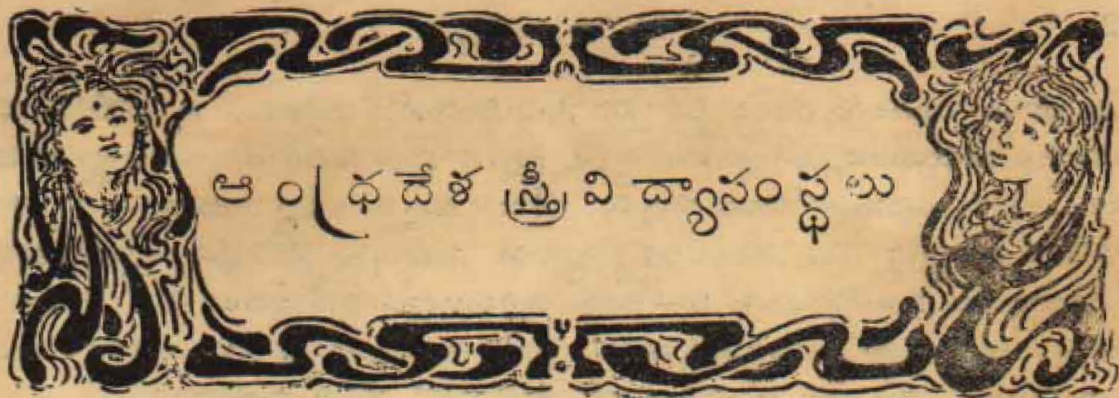 ఆంధ్రదేశ స్త్రీవిద్యాసంస్థలు